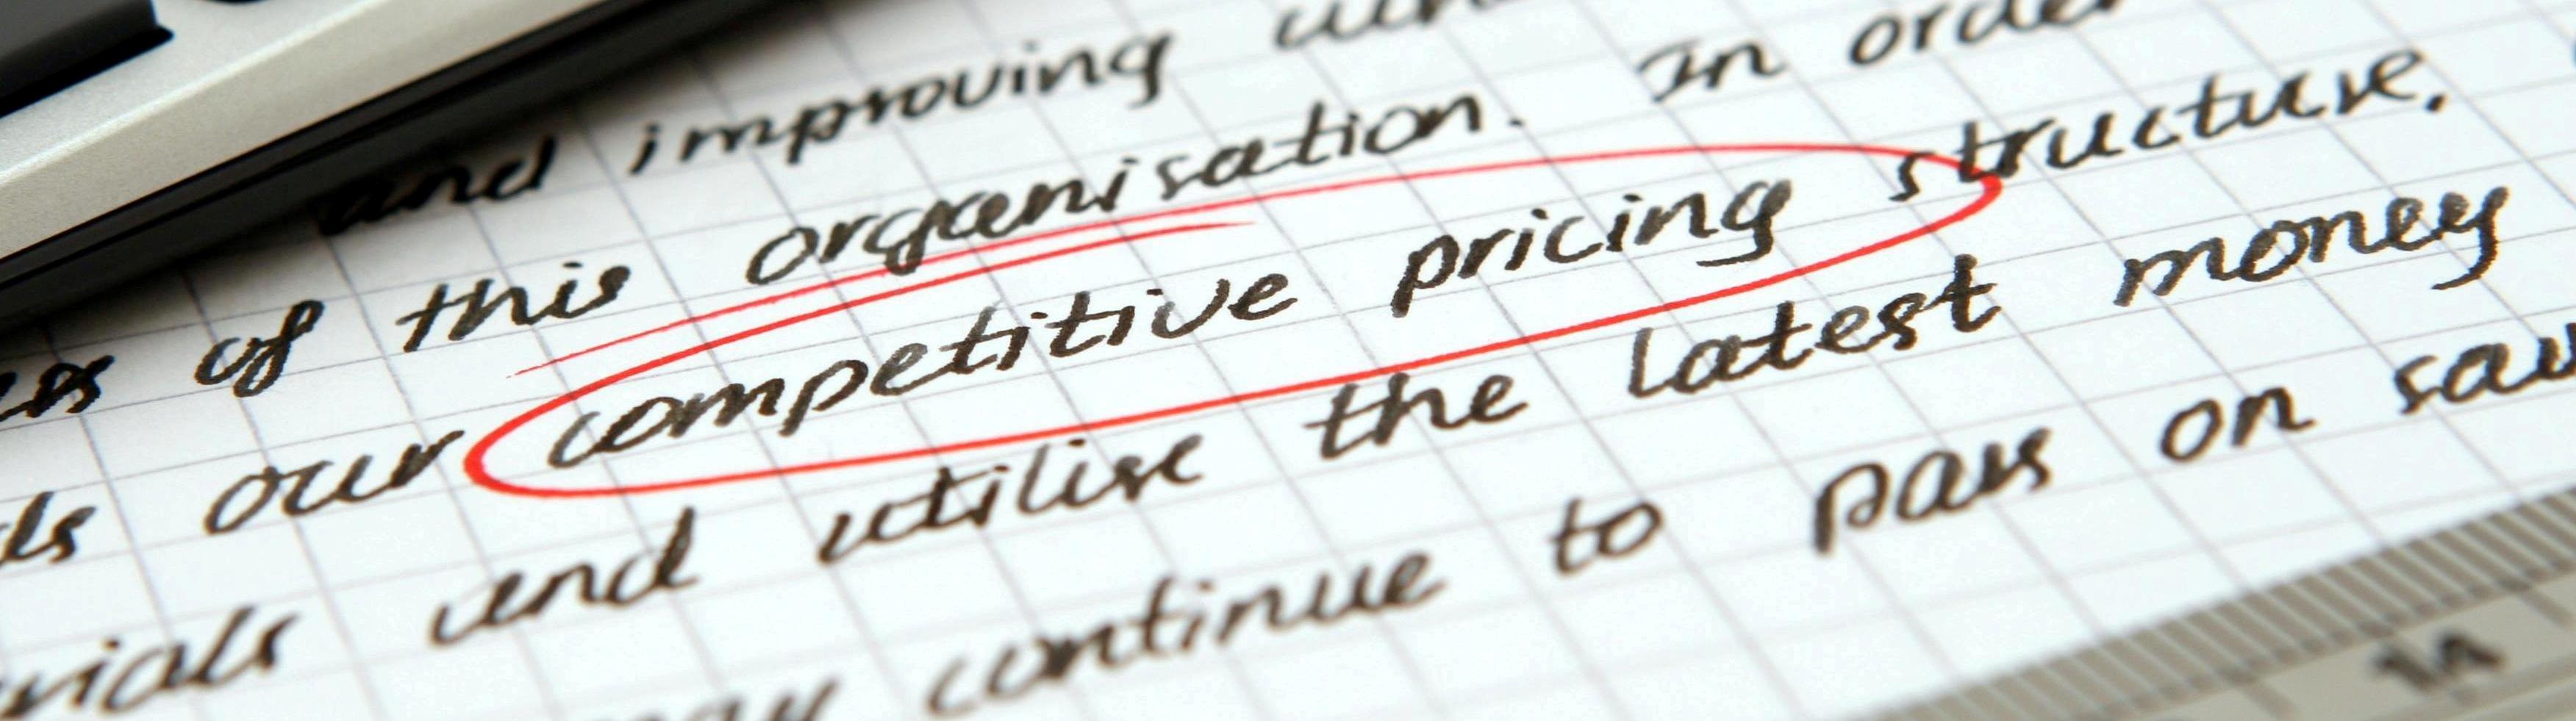 and improving
of this organisation. In order
our competitive pricing structure.
and utilise the latest money
continue to pass on
14